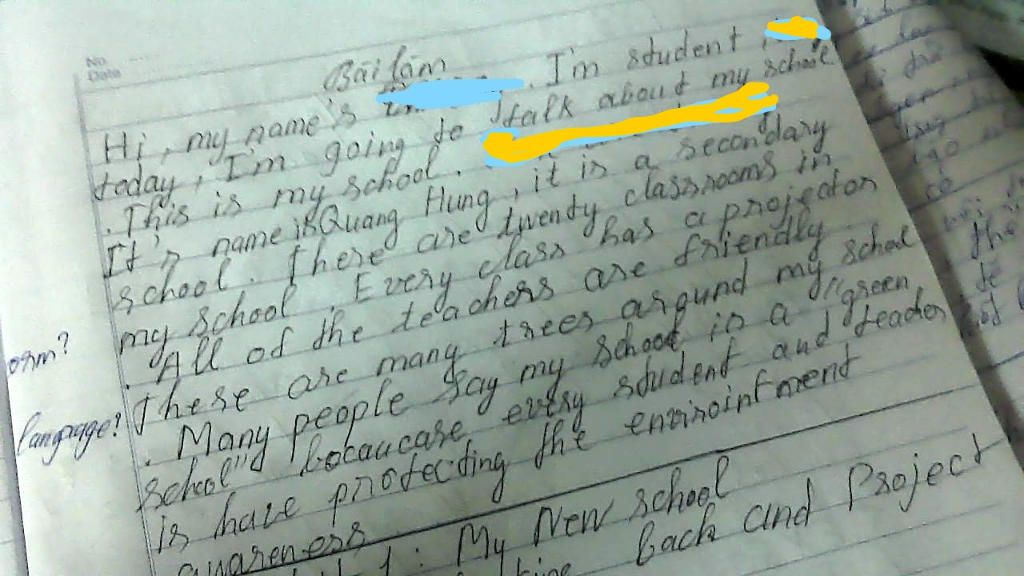 No.
Date
Bài làm
Hi, my name is . I'm student
today, I'm going to talk about my school
. This is my school.
It's name is Quang Hung, it is a secondary
school. There are twenty classrooms in
my school. Every class has a projector
. All of the teachers are friendly
There are many trees around my school
. Many people say my school is a "green
school" becaucare every student and teacher
is have protecting the enviroinfment
awareness
1: My New school
back and Project
orm?
language?
the